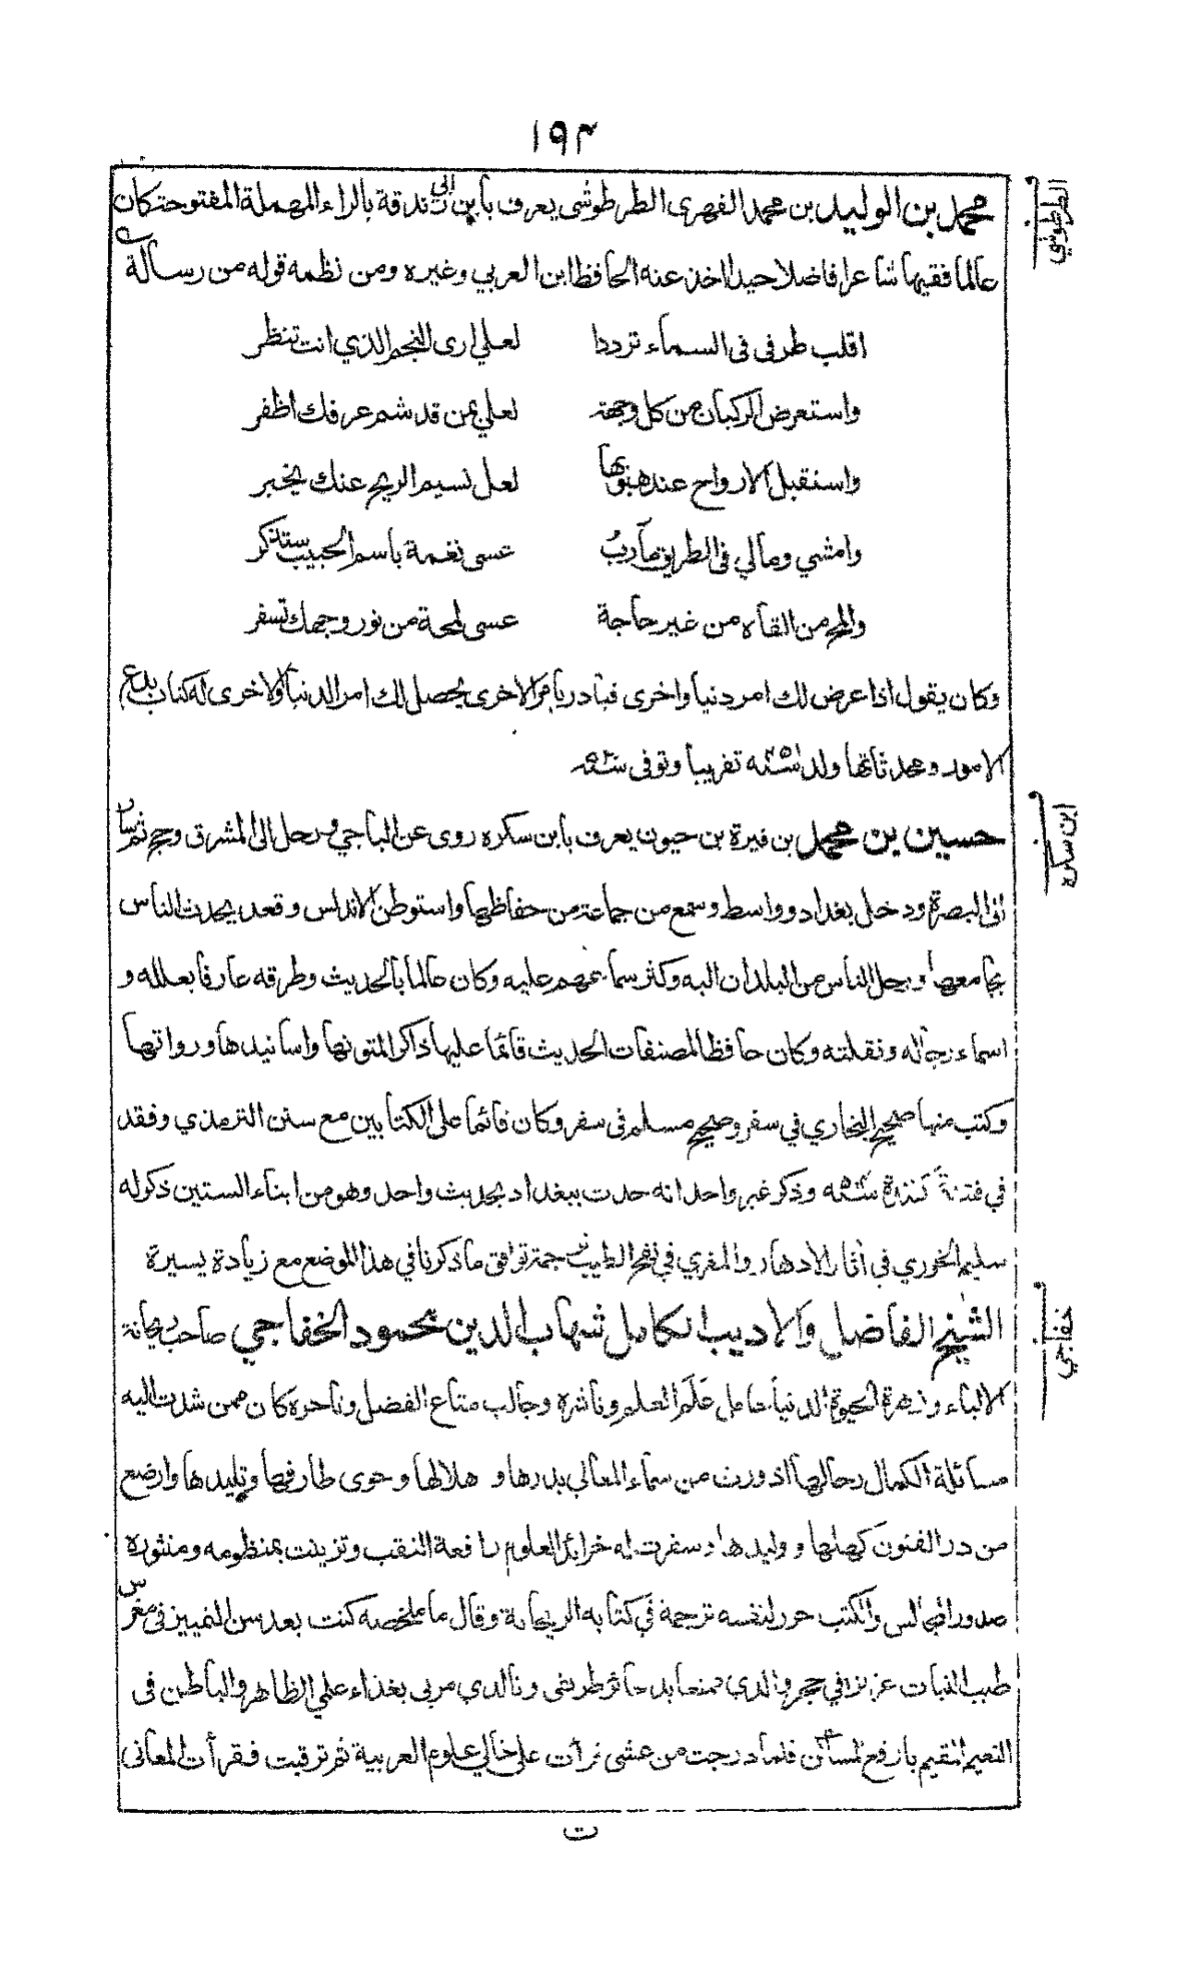 ١٩٣
محمد بن الوليد بن محمد الفهري الطرطوشي يعرف بابن ابي رندقة بالراء المهملة المفتوحة كان
الطرطوشي
عالما فقيها شاعرا فاضلا جيدا اخذ عنه الحافظ ابن العربي وغيره ومن نظمه قوله من رسالة
اقلب طرفى فى السماء ترددا لعلي ارى النجم الذي انت تنظر
واستعرض الركبان من كل وجهة لعلي بمن قد شم عرفك اظفر
واستقبل الارواح عند هبوبها لعل نسيم الريح عنك يخبر
وامشي ومالي فى الطريق مآرب عسى نغمة باسم الحبيب ستذكر
والمح من القاه من غير حاجة عسى لمحة من نور وجهك تسفر
وكان يقول اذا عرض لك امر دنيا واخرى فبادر بامر الاخرى يحصل لك امر الدنيا والاخرى له كتاب بدع
الامور ومحدثاتها ولد سنه تقريبا وتوفى سنه
حسين بن محمد بن فيرة بن حيون يعرف بابن سكره روى عن الباجي ورحل الى المشرق وحج ثم سار
ابن سكره
الى البصرة ودخل بغداد وواسط وسمع من جماعة من حفاظها واستوطن الاندلس وقعد يحدث الناس
بجامعها ورحل الناس من البلدان اليه وكثر سماعهم عليه وكان عالما بالحديث وطرقه عارفا بعلله و
اسماء رجاله ونقلته وكان حافظا لمصنفات الحديث قائما عليها ذاكرا لمتونها واسانيدها ورواتها
وكتب منها صحيح البخاري في سفر وصحيح مسلم فى سفر وكان قائما على الكتابين مع سنن الترمذي وفقد
في فتنة كتندة سنه وذكر غير واحد انه حدث ببغداد بحديث واحد وهو من ابناء الستين ذكر له
سليم الخوري في آثار الادهار والمقري في نفح الطيب ترجمة توافق ما ذكرنا في هذا الموضع مع زيادة يسيرة
الشيخ الفاضل والاديب الكامل شهاب الدين محمود الخفاجي صاحب ريحانة
خفاجي
الالباء وزهرة الحيوة الدنيا حامل علم العلم وناشره وجالب متاع الفضل وتاجره كان ممن شدت اليه
مسائلة الكمال رحالها اذ ورث من سماء المعالي بدرها و هلالها وحوى طارفها وتليدها وارضع
من در الفنون كهلها ووليدها وسفرت له خرائد العلوم رافعة النقب وتزينت بمنظومه ومنثوره
صدور المجالس والكتب حرر لنفسه ترجمة في كتابه الريحانة وقال ما ملخصه كنت بعد سن التمييز فى مغرس
طيب النبات عزيزا في حجر والدي ممتعا بذخائر طريفى وتالدي مربى بغذاء علمي الظاهر والباطن فى
النعيم المقيم بارفع المساكن فلما درجت من عشى قرأت على خالي علوم العربية ثم ترقيت فقرأت المعاني
ت